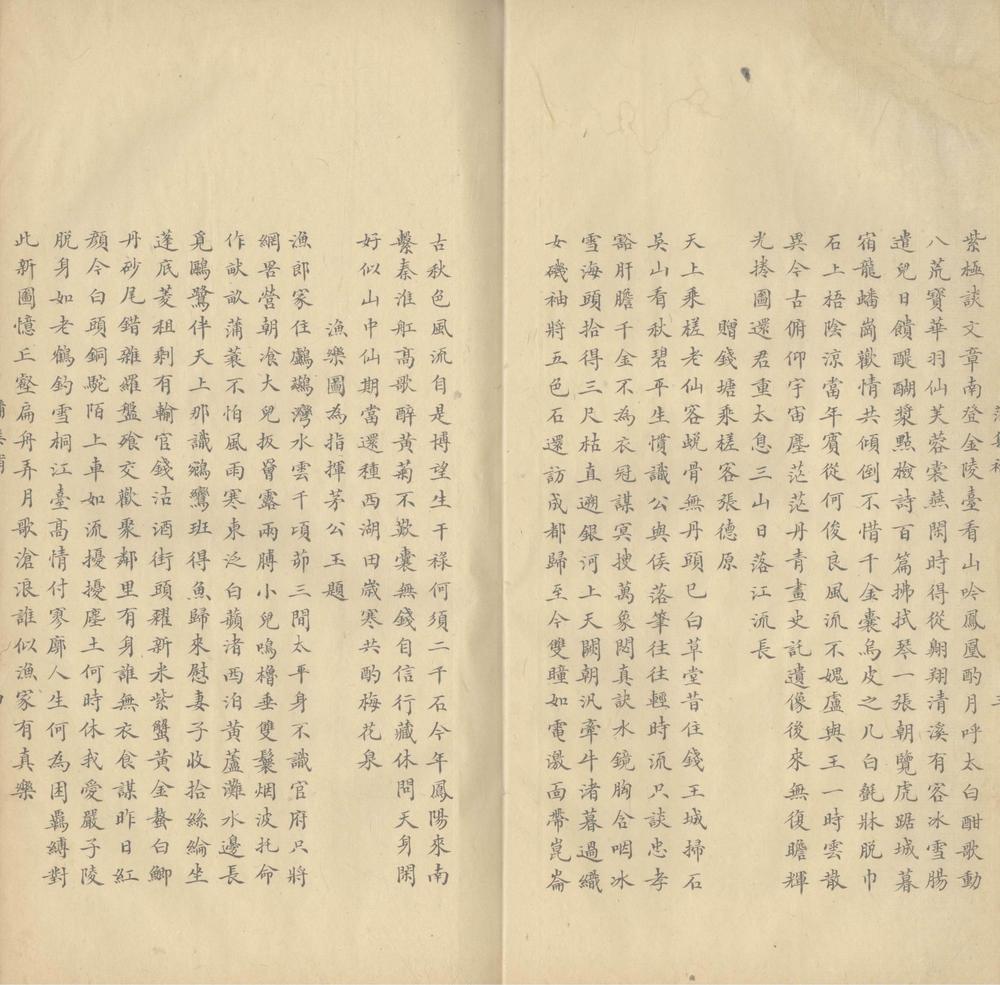 紫極談文章南登金陵臺看山吟鳳凰酌月呼太白酣歌動
八荒寶華羽仙芙蓉裳燕閑時得從翺翔清溪有客冰雪腸
遣兒日饋醍醐漿點檢詩百篇拂拭琴一張朝覽虎踞城暮
宿龍蟠崗歡情共傾倒不惜千金囊烏皮之几白氈牀脱巾
石上梧陰涼當年賓從何俊良風流不媿盧與王一時雲散
異今古俯仰宇宙塵茫茫丹青畫史託遺像後來無復瞻輝
光捲圖還君重太息三山日落江流長
贈錢塘乘槎客張德原
天上乘槎老仙客蜕骨無丹頭已白草堂昔住錢王城掃石
吳山看秋碧平生慣識公與侯落筆往往輕時流只談忠孝
豁肝膽千金不為衣冠謀冥搜萬象閟真訣水鏡胸含咽冰
雪海頭拾得三尺枯直遡銀河上天闕朝汎牽牛渚暮過織
女磯袖將五色石還訪成都歸至今雙瞳如電激面帶崑崙
古秋色風流自是博望生干祿何須二千石今年鳳陽來南
繫秦淮舡高歌醉黃菊不歎囊無錢自信行藏休問天身閑
好似山中仙期當還種西湖田歲寒共酌梅花泉
漁樂圖為指揮茅公玉題
漁郎家住鸕鷀灣水雲千頃茆三間太平身不識官府只將
網罟營朝飡大兒扳罾露兩膊小兒鳴櫓垂雙鬟烟波托命
作畎畝蒲蓑不怕風雨寒東泛白蘋渚西泊黃蘆灘水邊長
覓鷗鷺伴天上那識鵷鸞班得魚歸來慰妻子收拾絲綸坐
蓬底菱租剩有輸官錢沽酒街頭糴新米紫蟹黃金螯白鯽
丹砂尾錯雜羅盤飱交歡聚鄰里有身誰無衣食謀昨日紅
顏今白頭銅駝陌上車如流擾擾塵土何時休我愛嚴子陵
脱身如老鶴釣雪桐江臺高情付寥廓人生何為困羈縛對
此新圖憶丘壑扁舟弄月歌滄浪誰似漁家有真樂